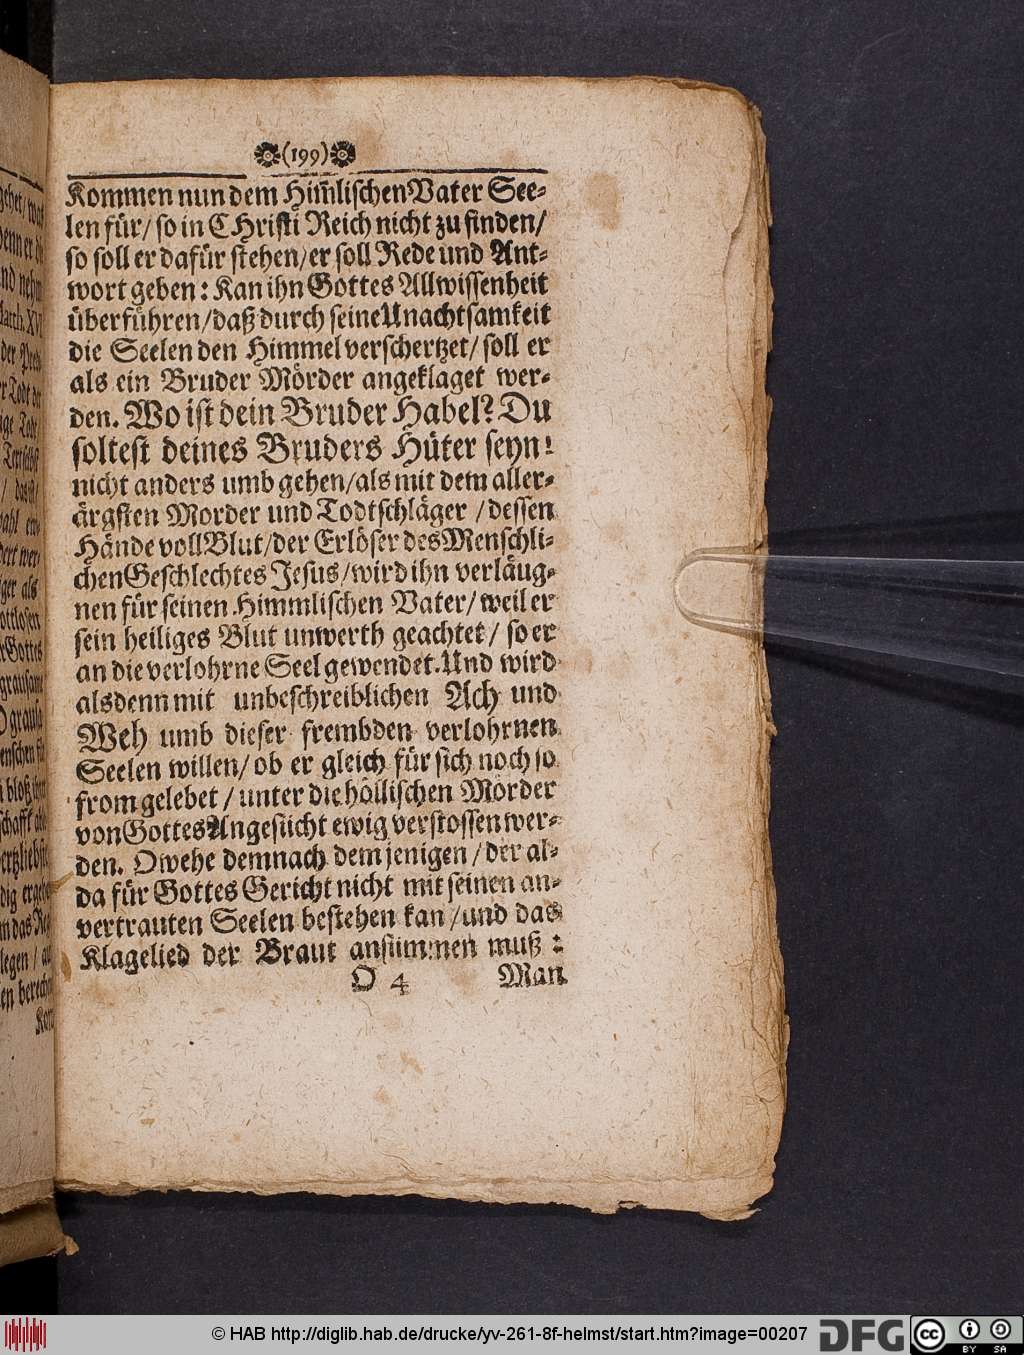 (199)
Kommen nun dem Him̃lischen Vater See-
len für/ so in CHristi Reich nicht zu finden/
so soll er dafür stehen/ er soll Rede und Ant-
wort geben: Kan ihn Gottes Allwissenheit
überführen/ daß durch seine Unachtsamkeit
die Seelen den Himmel verschertzet/ soll er
als ein Bruder Mörder angeklaget wer-
den. Wo ist dein Bruder Habel? Du
soltest deines Bruders Hüter seyn!
nicht anders umb gehen/ als mit dem aller-
ärgsten Morder und Todtschläger / dessen
Hände voll Blut/ der Erlöser des Menschli-
chen Geschlechtes Jesus/ wird ihn verläug-
nen für seinen Himmlischen Vater/ weil er
sein heiliges Blut unwerth geachtet/ so er
an die verlohrne Seel gewendet. Und wird
alsdenn mit unbeschreiblichen Ach und
Weh umb dieser frembden verlohrnen
Seelen willen/ ob er gleich für sich noch so
from gelebet / unter die höllischen Mörder
von Gottes Angesiicht ewig verstossen wer-
den. O wehe demnach dem jenigen / der al-
da für Gottes Gericht nicht mit seinen an-
vertrauten Seelen bestehen kan / und das
Klagelied der Braut anstimmen muß :
O 4 Man
© HAB http://diglib.hab.de/drucke/yv-261-8f-helmst/start.htm?image=00207
DFG
cc BY SA